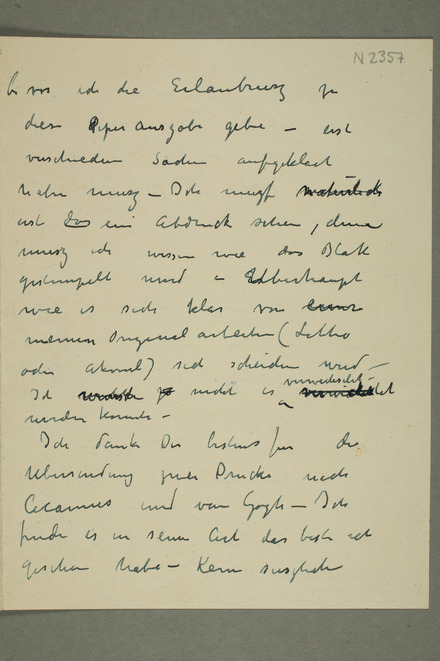 N 2357
bevor ich die Erlaubnisz zu
dieser Piper ausgabe gebe – erst
verschiedene Sachen aufgeklaert
haben musz – Ich musz natürlich
erst das ein Abdruck sehen, denn
musz ich wissen wie das Blatt
gestempelt wird – Ueberhaupt
wie es sich klar von einer
meinen Originalarbeiten (Litho
oder Aquarell) sich scheiden wird –
Ich nicht es verwechselt
werden koennte –
Ich danke Dir bestens fuer die
Ubersendung zwei Drucke nach
Cezannes und van Gogh – Ich
finde es in seiner Art das beste ich
gesehen habe – Kein